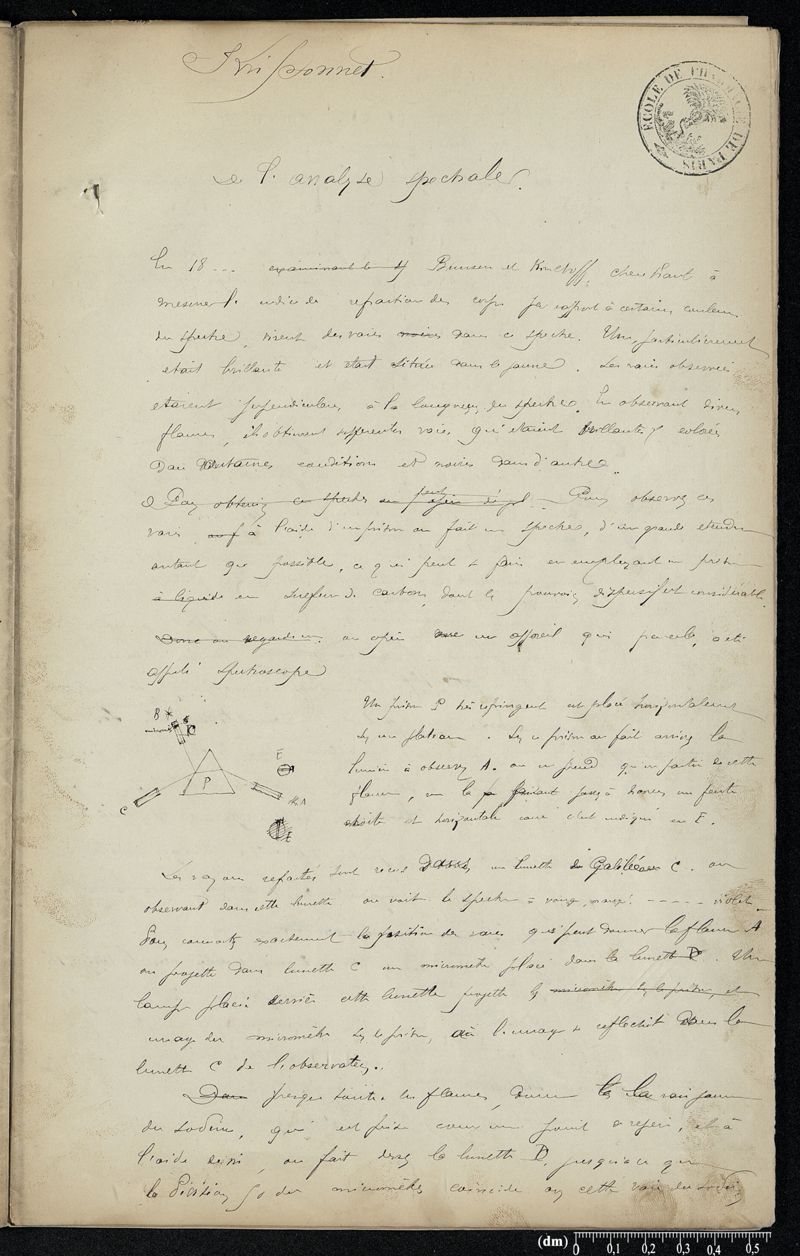 ÉCOLE DE PHARMACIE DE PARIS
De l'analyse spectrale.
En 18 ... examinant le Bunsen et Kirchoff, cherchant à
mesurer l'indice de réfraction des corps par rapport à certaines couleurs
du spectre, virent des raies noires dans ce spectre. Une particulièrement
était brillante et était située dans le jaune. Les raies observées
étaient perpendiculaires à la longueur du spectre. En observant divers
flammes, ils obtinrent différentes raies, qui étaient brillantes colorées
dans certaines conditions et noires dans d'autres.
Pour obtenir ce spectre on peut Pour observer ces
raies à l'aide d'un prisme on fait un spectre, d'un grande étendue
autant que possible, ce qui peut se faire en employant un prisme
à liquide en sulfure de carbone, dont le pouvoir dispersif est considérable.
Donc on regarde on opère avec un appareil qui pour cela, a été
appelé spectroscope
Un prisme P très réfringent est placé horizontalement
sur un plateau. Sur ce prisme on fait arriver la
lumière à observer A. on ne prend qu'un partie de cette
flamme, en la faisant passer à travers un fente
droite et horizontale comme c'est indiqué en E.
B
micromètre
D
P
C
E
A
E
Les rayons réfractés sont reçus dans un lunette de Galilée C. on
observant dans cette lunette on voit le spectre = rouge, orangé, - - - - - violet.
Pour connaître exactement la position des raies que peut donner la flamme A
on projette dans lunette C un micromètre placé dans la lunette D. Une
lampe placée derrière cette lunette projette le micromètre sur le prisme, et
image du micromètre sur le prisme, où l'image se réfléchit dans la
lunette C de l'observateur.
Dans presque toutes les flammes, donnent la raie jaune
du sodium, qui est prise comme un point de repère, et à
l'aide de vis, on fait dresser la lunette D, jusqu'à ce que
la division 50 du micromètre coïncide avec cette raie du sodium
(dm) 0 0,1 0,2 0,3 0,4 0,5